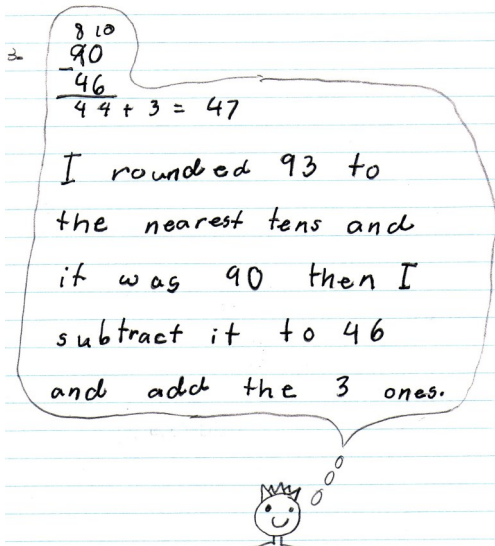 3.
8 10
90
-46
44 + 3 = 47
I rounded 93 to
the nearest tens and
it was 90 then I
subtract it to 46
and add the 3 ones.